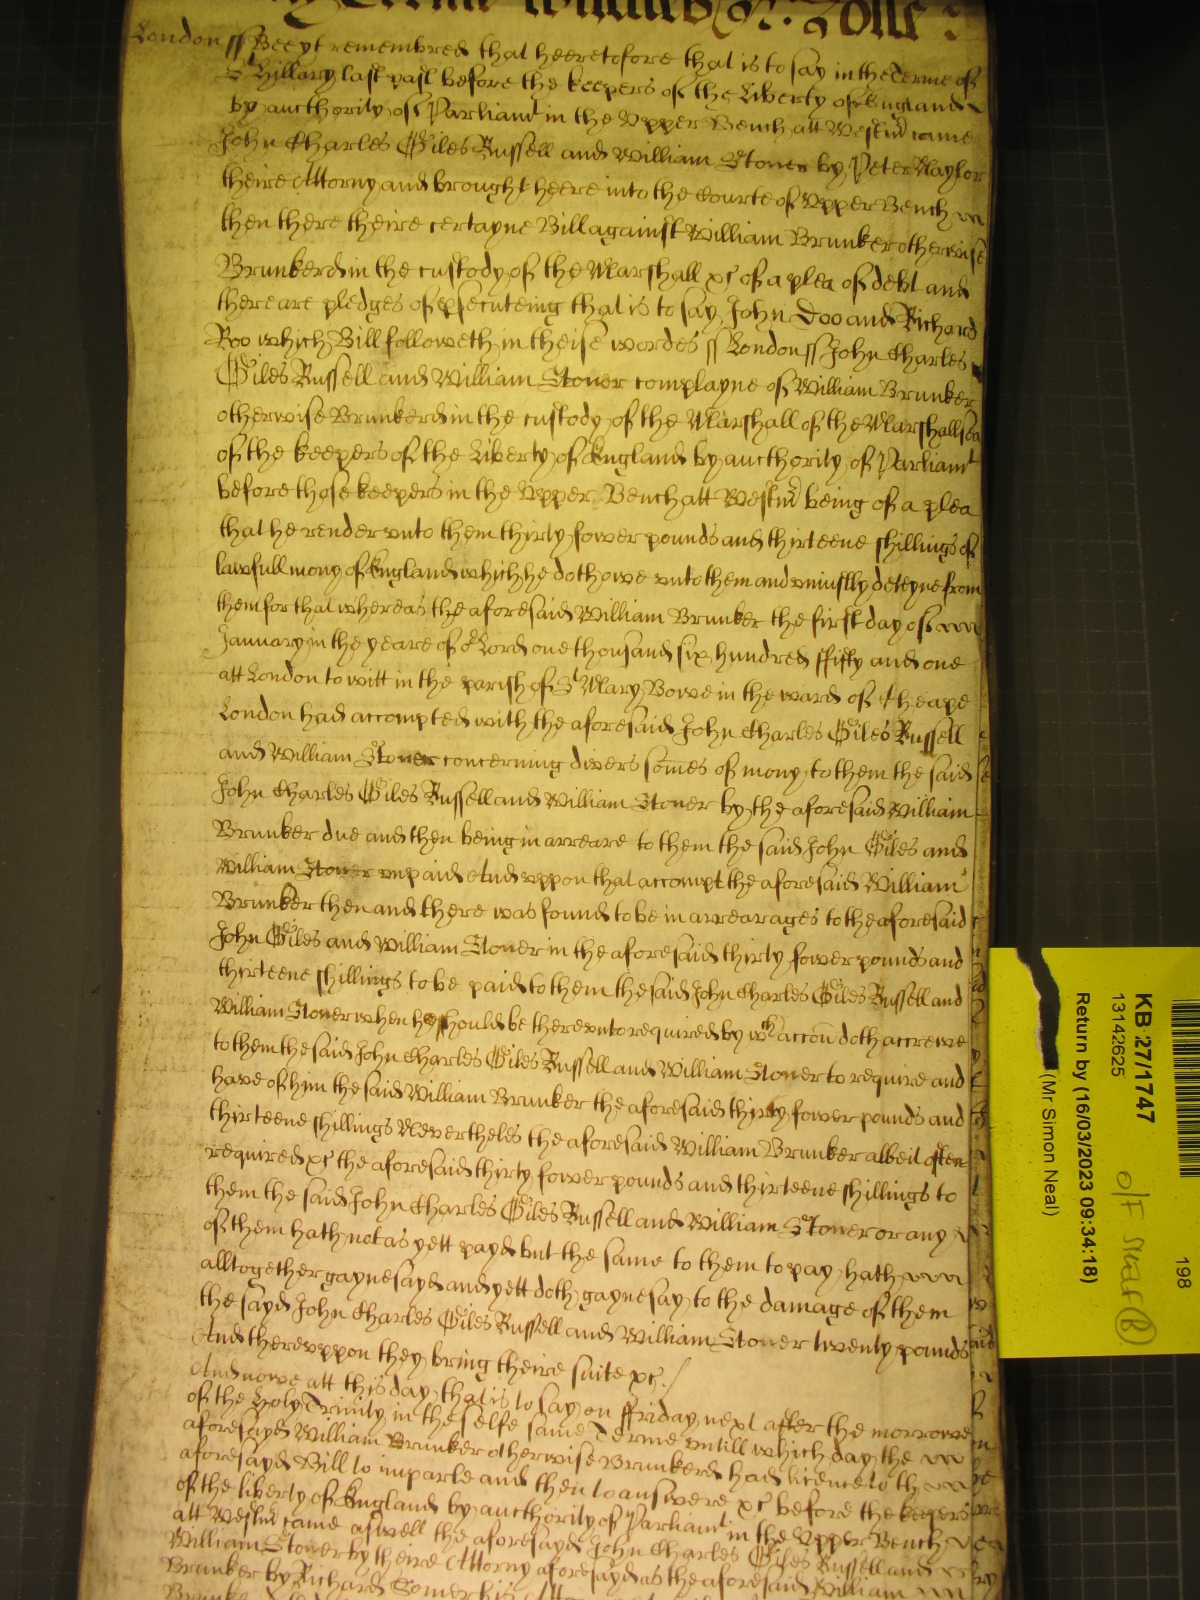 Terme Witnes R: Rolle :
London ss Bee yt remembred that heeretofore that is to say in the Terme of
St Hillary last past before the keepers of the Liberty of England
by aucthority of Parliamt in the Upper Bench att Westmr came
John Charles Giles Russell and William Stoner by Peter Naylor
theire Attorny and brought heere into the Courte of Upper Bench
then there theire certayne Bill against William Brunker otherwise
Brunkerd in the custody of the Marshall xc of a plea of debt and
there are pledges of psecuteing that is to say John Doo and Richard
Roo which Bill followeth in theise wordes ss London ss John Charles
Giles Russell and William Stoner complayne of William Brunker
otherwise Brunkerd in the custody of the Marshall of the Marshallsea
of the keepers of the Liberty of England by aucthority of Parliamt
before those keepers in the Upper Bench att Westmr being of a plea
that he render unto them thirty fower pounds and thirteene shillings of
lawfull mony of England which he doth owe unto them and uniustly deteyne from
them for that whereas the aforesaid William Brunker the first day of
January in the yeare of or Lord one thousand six hundred ffifty and one
att London to witt in the parish of St Mary Bowe in the ward of Cheape
London had accompted with the aforesaid John Charles Giles Russell
and William Stoner concerning divers somes of mony to them the said
John Charles Giles Russell and William Stoner by the aforesaid William
Brunker due and then being in arreare to them the said John Giles and
William Stoner unpaid And uppon that accompt the aforesaid William
Brunker then and there was found to be in arrearages to the aforesaid
John Giles and William Stoner in the aforesaid thirty fower pounds and
thirteene shillings to be paid to them the said John Charles Giles Russell and
William Stoner when he should be thereunto required by wch accon doth accrewe
to them the said John Charles Giles Russell and William Stoner to require and
have of him the said William Brunker the aforesaid thirty fower pounds and
thirteene shillings Neverthelès the aforesaid William Brunker albeit often
required xc the aforesaid thirty fower pounds and thirteene shillings to
them the said John Charles Giles Russell and William Stoner or any
of them hath not as yett payd but the same to them to pay hath
alltogether gaynesayd and yett doth gaynesay to the damage of them
the sayd John Charles Giles Russell and William Stoner twenty pounds
And thereuppon they bring theire suite xc./
And nowe att this day that is to say on ffriday next after the morrowe
of the Holy Trinity in the selfe same Terme untill which day the
aforesayd William Brunker otherwise Brunkerd had licence to th
aforesayd Bill to imparle and then to answere xc before the keepers
of the liberty of England by aucthority of Parliamt in the Upper Bench
att Westmr came aswell the aforesayd John Charles Giles Russell and
William Stoner by theire Attorny aforesayd as the aforesaid William
Brunker by Richard Comer his
198
KB 27/1747
13142625
O/F
Return by (16/03/2023 09:34:18)
(Mr Simon Neal)